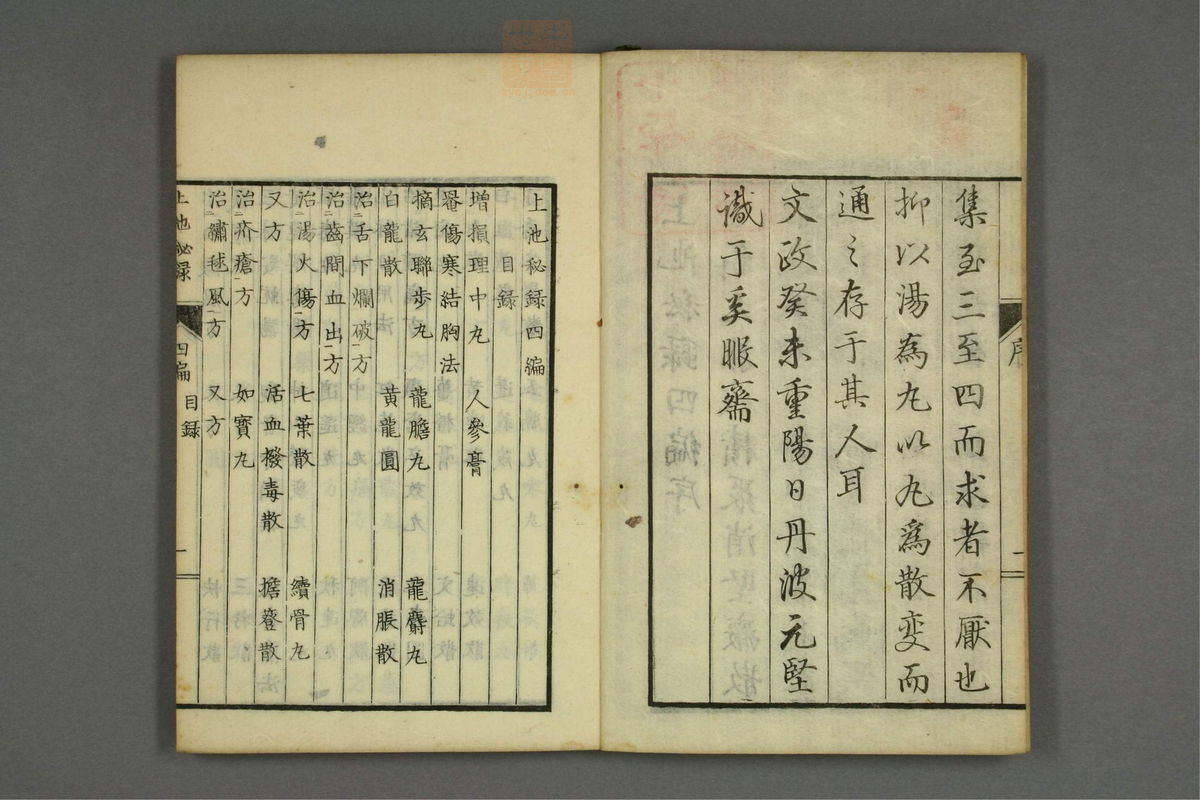 集至三至四而求者不厭也
抑以湯為丸以丸為散変而
通之存于其人耳
文政癸未重陽日丹波元堅
識于奚暇齋
序
上池秘録四編
目録
増損理中丸 人參膏
罨傷寒結胸法
摘玄聯步丸 龍膽丸 龍麝丸
白龍散 黄龍圓 消脹散
治舌下爛破方
治齒間血出方
治湯火傷方 七葉散 續骨丸
又方 活血撥毒散 擔簦散
治疥瘡方 如寳丸
治繡毬風方 又方
上池秘録 四編 目録 一